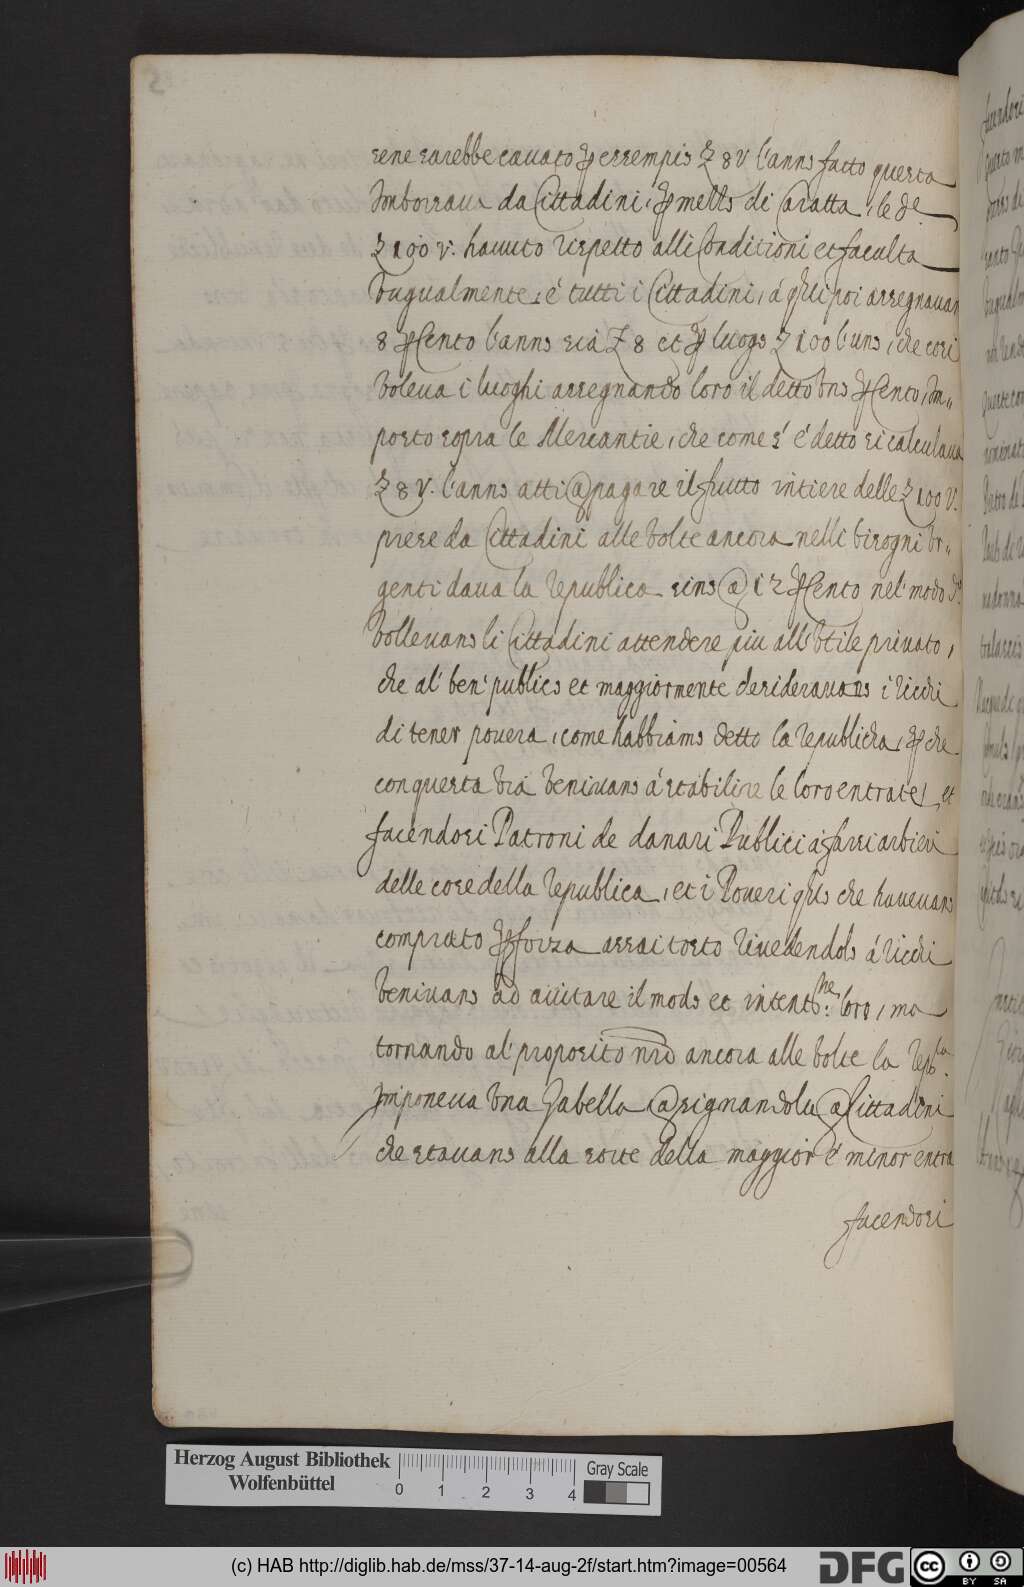 sene sarebbe cavato p essempio £ 8 v l'anno fatto questo
Imborsava da Cittadini, p mezzo di Caratta, le de
£ 100 v. hauuto rispetto alli Conditioni et faculta
Vugualmente, é tutti i Cittadini, á qli poi assegnauan
8 p Cento l'anno sia £ 8 et p luogo £ 100 l'uno, che cosi
Voleua i luoghi assegnando loro il detto Uno p Cento, Im-,
posto sopra le Mercantie, che come s' é detto si calculaua
£ 8 v. l'anno atti @ pagare il frutto intiere delle £ 100 v.
prese da Cittadini alle Volte ancora nelli bisogni Ur-,
genti daua la republica sino @ 12 p Cento nel' modo
Volleuano li Cittadini attendere piu all' Utile priuato,
che al' ben' publico et maggiormente desiderauano i ricchi
di tener pouera, come habbiamo detto la republicha, p che
con questa Via Veniuano á stabilire le loro entrate, et
facendosi Patroni de danari Publici á farsi arbieri
delle cose della republica, et i Poueri qllo che haueuano
comprato p forza assai torto riuedendolo á ricchi
Veniuano ad auitare il modo et intentne: loro, ma
tornando al' proposito nro ancora alle Volte la repla.
Imponeua Una Gabella @ssignandola @ Cittadini
che stauano alla sorte della maggior é minor entra
facendosi
Herzog August Bibliothek
Wolfenbüttel
0 1 2 3 4
Gray Scale
(c) HAB http://diglib.hab.de/mss/37-14-aug-2f/start.htm?image=00564
DFG
cc BY SA